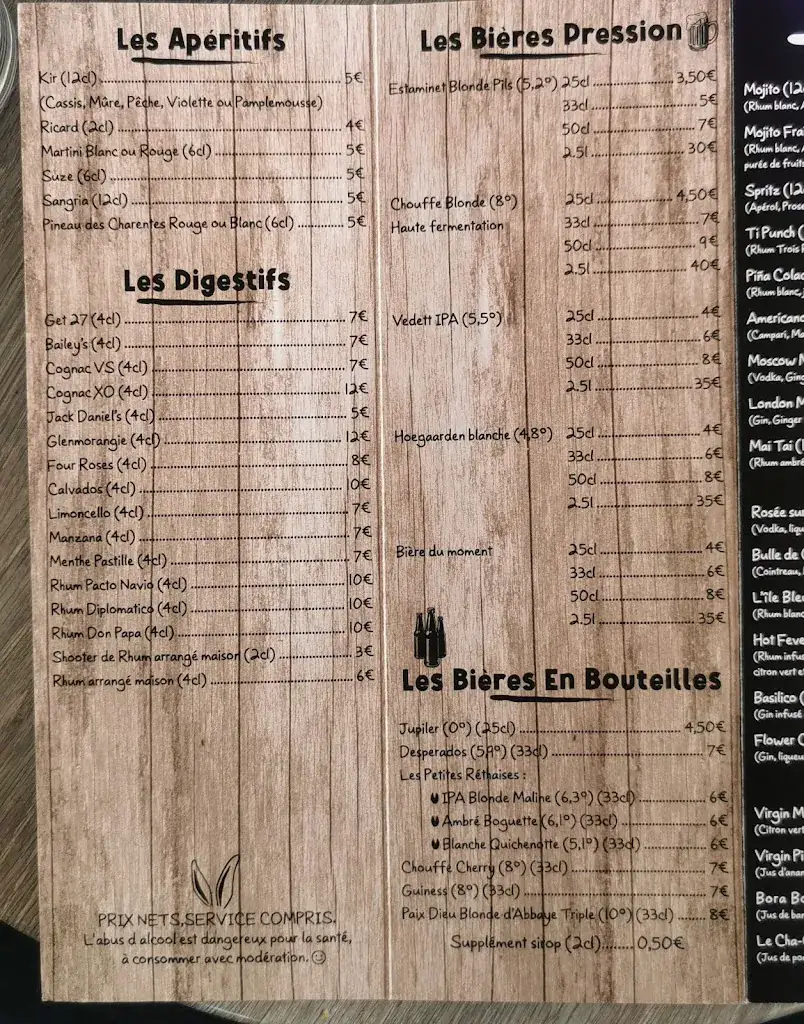 Les Apéritifs
Kir (12cl) 5€
(Cassis, Mûre, Pêche, Violette ou Pamplemousse)
Ricard (2cl) 4€
Martini Blanc ou Rouge (6cl) 5€
Suze (6cl) 5€
Sangria (12cl) 5€
Pineau des Charentes Rouge ou Blanc (6cl) 5€
Les Digestifs
Get 27 (4cl) 7€
Bailey's (4cl) 7€
Cognac VS (4cl) 7€
Cognac XO (4cl) 12€
Jack Daniel's (4cl) 5€
Glenmorangie (4cl) 12€
Four Roses (4cl) 8€
Calvados (4cl) 10€
Limoncello (4cl) 7€
Manzana (4cl) 7€
Menthe Pastille (4cl) 7€
Rhum Pacto Navio (4cl) 10€
Rhum Diplomatico (4cl) 10€
Rhum Don Papa (4cl) 10€
Shooter de Rhum arrangé maison (2cl) 3€
Rhum arrangé maison (4cl) 6€
PRIX NETS,SERVICE COMPRIS.
L'abus d alcool est dangereux pour la santé,
à consommer avec modération.
Les Bières Pression
Estaminet Blonde Pils (5,2°) 25cl 3,50€
33cl 5€
50cl 7€
2.5l 30€
Chouffe Blonde (8°) 25cl 4,50€
Haute fermentation 33cl 7€
50cl 9€
2.5l 40€
Vedett IPA (5,5°) 25cl 4€
33cl 6€
50cl 8€
2.5l 35€
Hoegaarden blanche (4,8°) 25cl 4€
33cl 6€
50cl 8€
2.5l 35€
Bière du moment 25cl 4€
33cl 6€
50cl 8€
2.5l 35€
Les Bières En Bouteilles
Jupiler (0°) (25cl) 4,50€
Desperados (5,9°) (33cl) 7€
Les Petites Réthaises :
IPA Blonde Maline (6,3°) (33cl) 6€
Ambré Boguette (6,1°) (33cl) 6€
Blanche Quichenotte (5,1°) (33cl) 6€
Chouffe Cherry (8°) (33cl) 7€
Guiness (8°) (33cl) 7€
Paix Dieu Blonde d'Abbaye Triple (10°) (33cl) 8€
Supplément sirop (2cl) 0,50€
Mojito (12
(Rhum blanc,
Mojito Fra
(Rhum blanc,
purée de fruits
Spritz (12
(Apérol, Prose
Ti Punch (
(Rhum Trois
Piña Colad
(Rhum blanc,
Americano
(Campari, Ma
Moscow M
(Vodka, Ging
London M
(Gin, Ginger
Mai Tai (
(Rhum ambré
Rosée sur
(Vodka, liqu
Bulle de
(Cointreau,
L'île Bleu
(Rhum blanc
Hot Feve
(Rhum infus
citron vert et
Basilico (
(Gin infusé
Flower C
(Gin, liqueu
Virgin M
(Citron vert
Virgin Pi
(Jus d'anan
Bora Bo
(Jus de ban
Le Cha-
(Jus de po